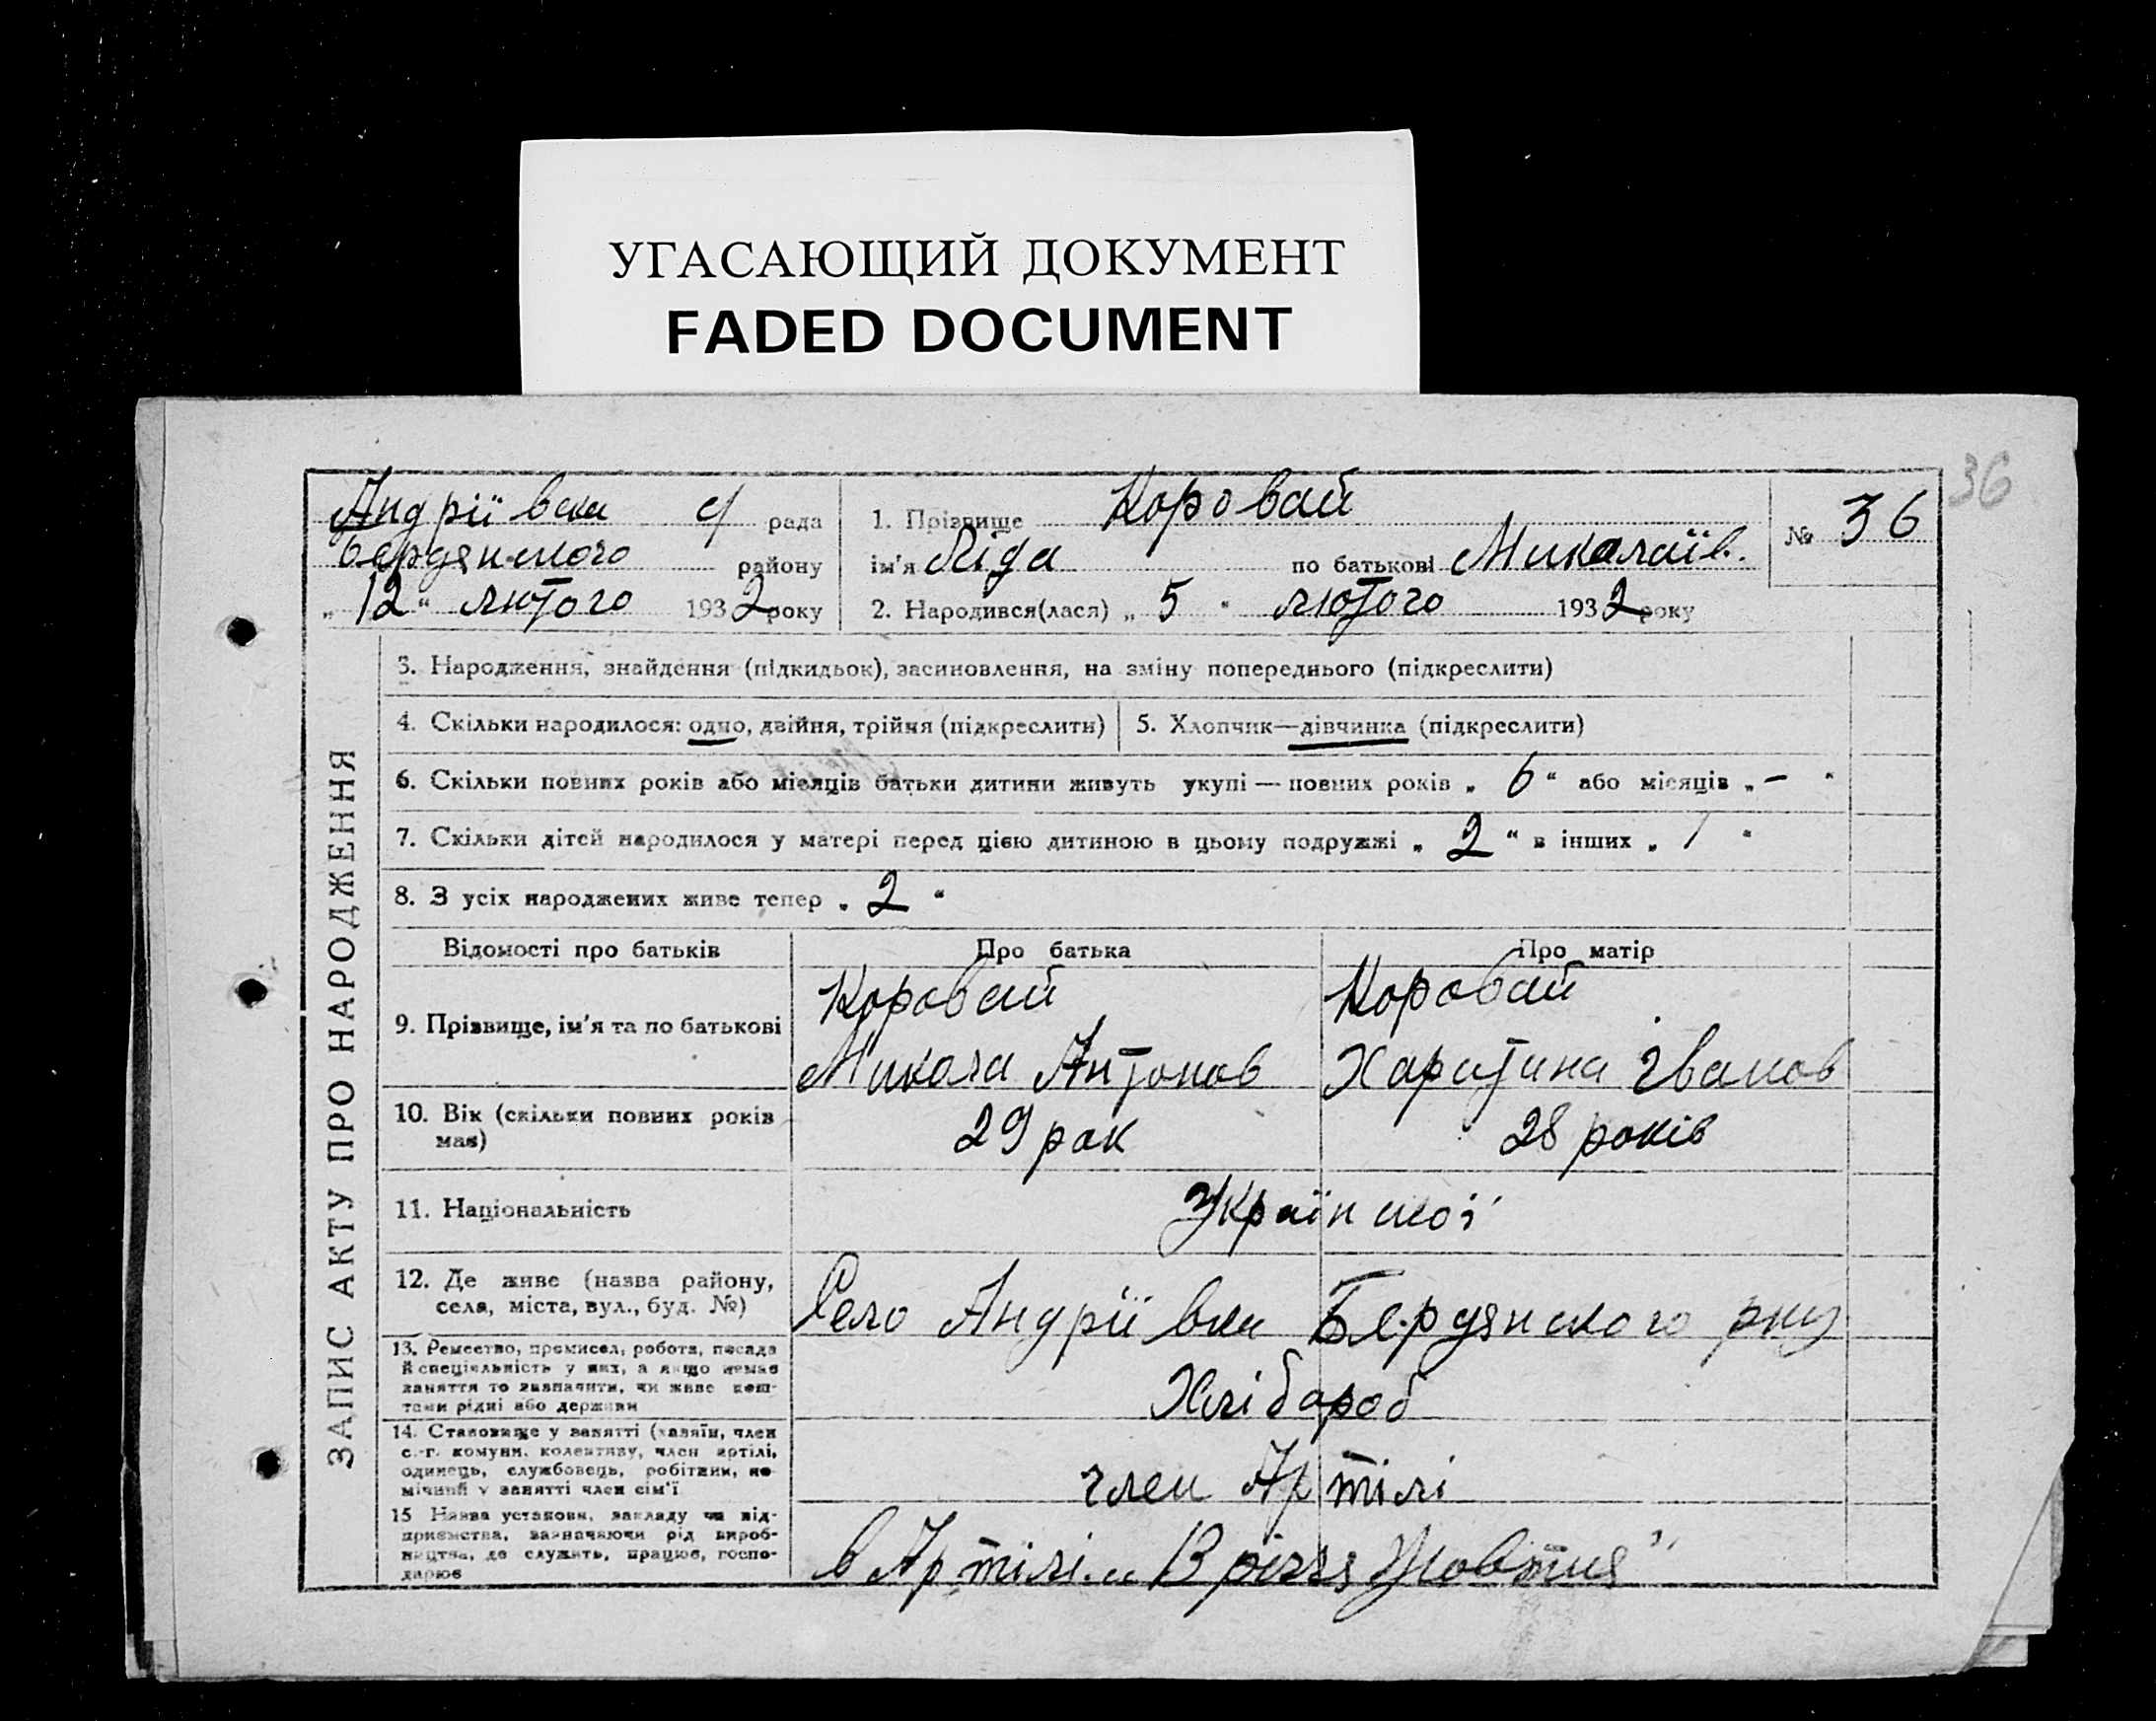 УГАСАЮЩИЙ ДОКУМЕНТ
FADED DOCUMENT
36
Андріївска с/ рада
Бердянского району
„ 12 “ лютого 1932 року
1. Прізвище Коровай
ім'я Ліда по батькові Миколаїв.
2. Народився(лася) „ 5 “ лютого 1932 року
№ 36
ЗАПИС АКТУ ПРО НАРОДЖЕННЯ
3. Народження, знайдення (підкидьок), засиновлення, на зміну попереднього (підкреслити)
4. Скільки народилося: одно, двійня, трійня (підкреслити)
5. Хлопчик—дівчинка (підкреслити)
6. Скільки повних років або місяців батьки дитини живуть укупі — повних років „ 6 “ або місяців „ – “
7. Скільки дітей народилося у матері перед цією дитиною в цьому подружжі „ 2 “ в інших „ / “
8. З усіх народжених живе тепер „ 2 “
Відомості про батьків Про батька Про матір
9. Прізвище, ім'я та по батькові
Коровай
Микола Антонов
Коровай
Харитина Іванов
10. Вік (скільки повних років
має)
29 рок
28 років
11. Національність
Українскої
12. Де живе (назва району,
села, міста, вул., буд. №)
Село Андріївка Бердянского рну
13. Ремество, промисел, робота, посада
й спеціяльність у них, а якщо немає
заняття то зазначити, чи живе кош-
тами рідні або держави
Хлібороб
14. Становище у занятті (хазяїн, член
с.-г. комуни, колективу, член артілі,
одинець, службовець, робітник, по-
мічний у занятті член сім'ї
член Артілі
15 Назва установи, закладу чи під-
приємства, зазначаючи рід вироб-
ництва, де служить, працює, госпо-
дарює
в Артілі „ 13 річчя Жовтня"